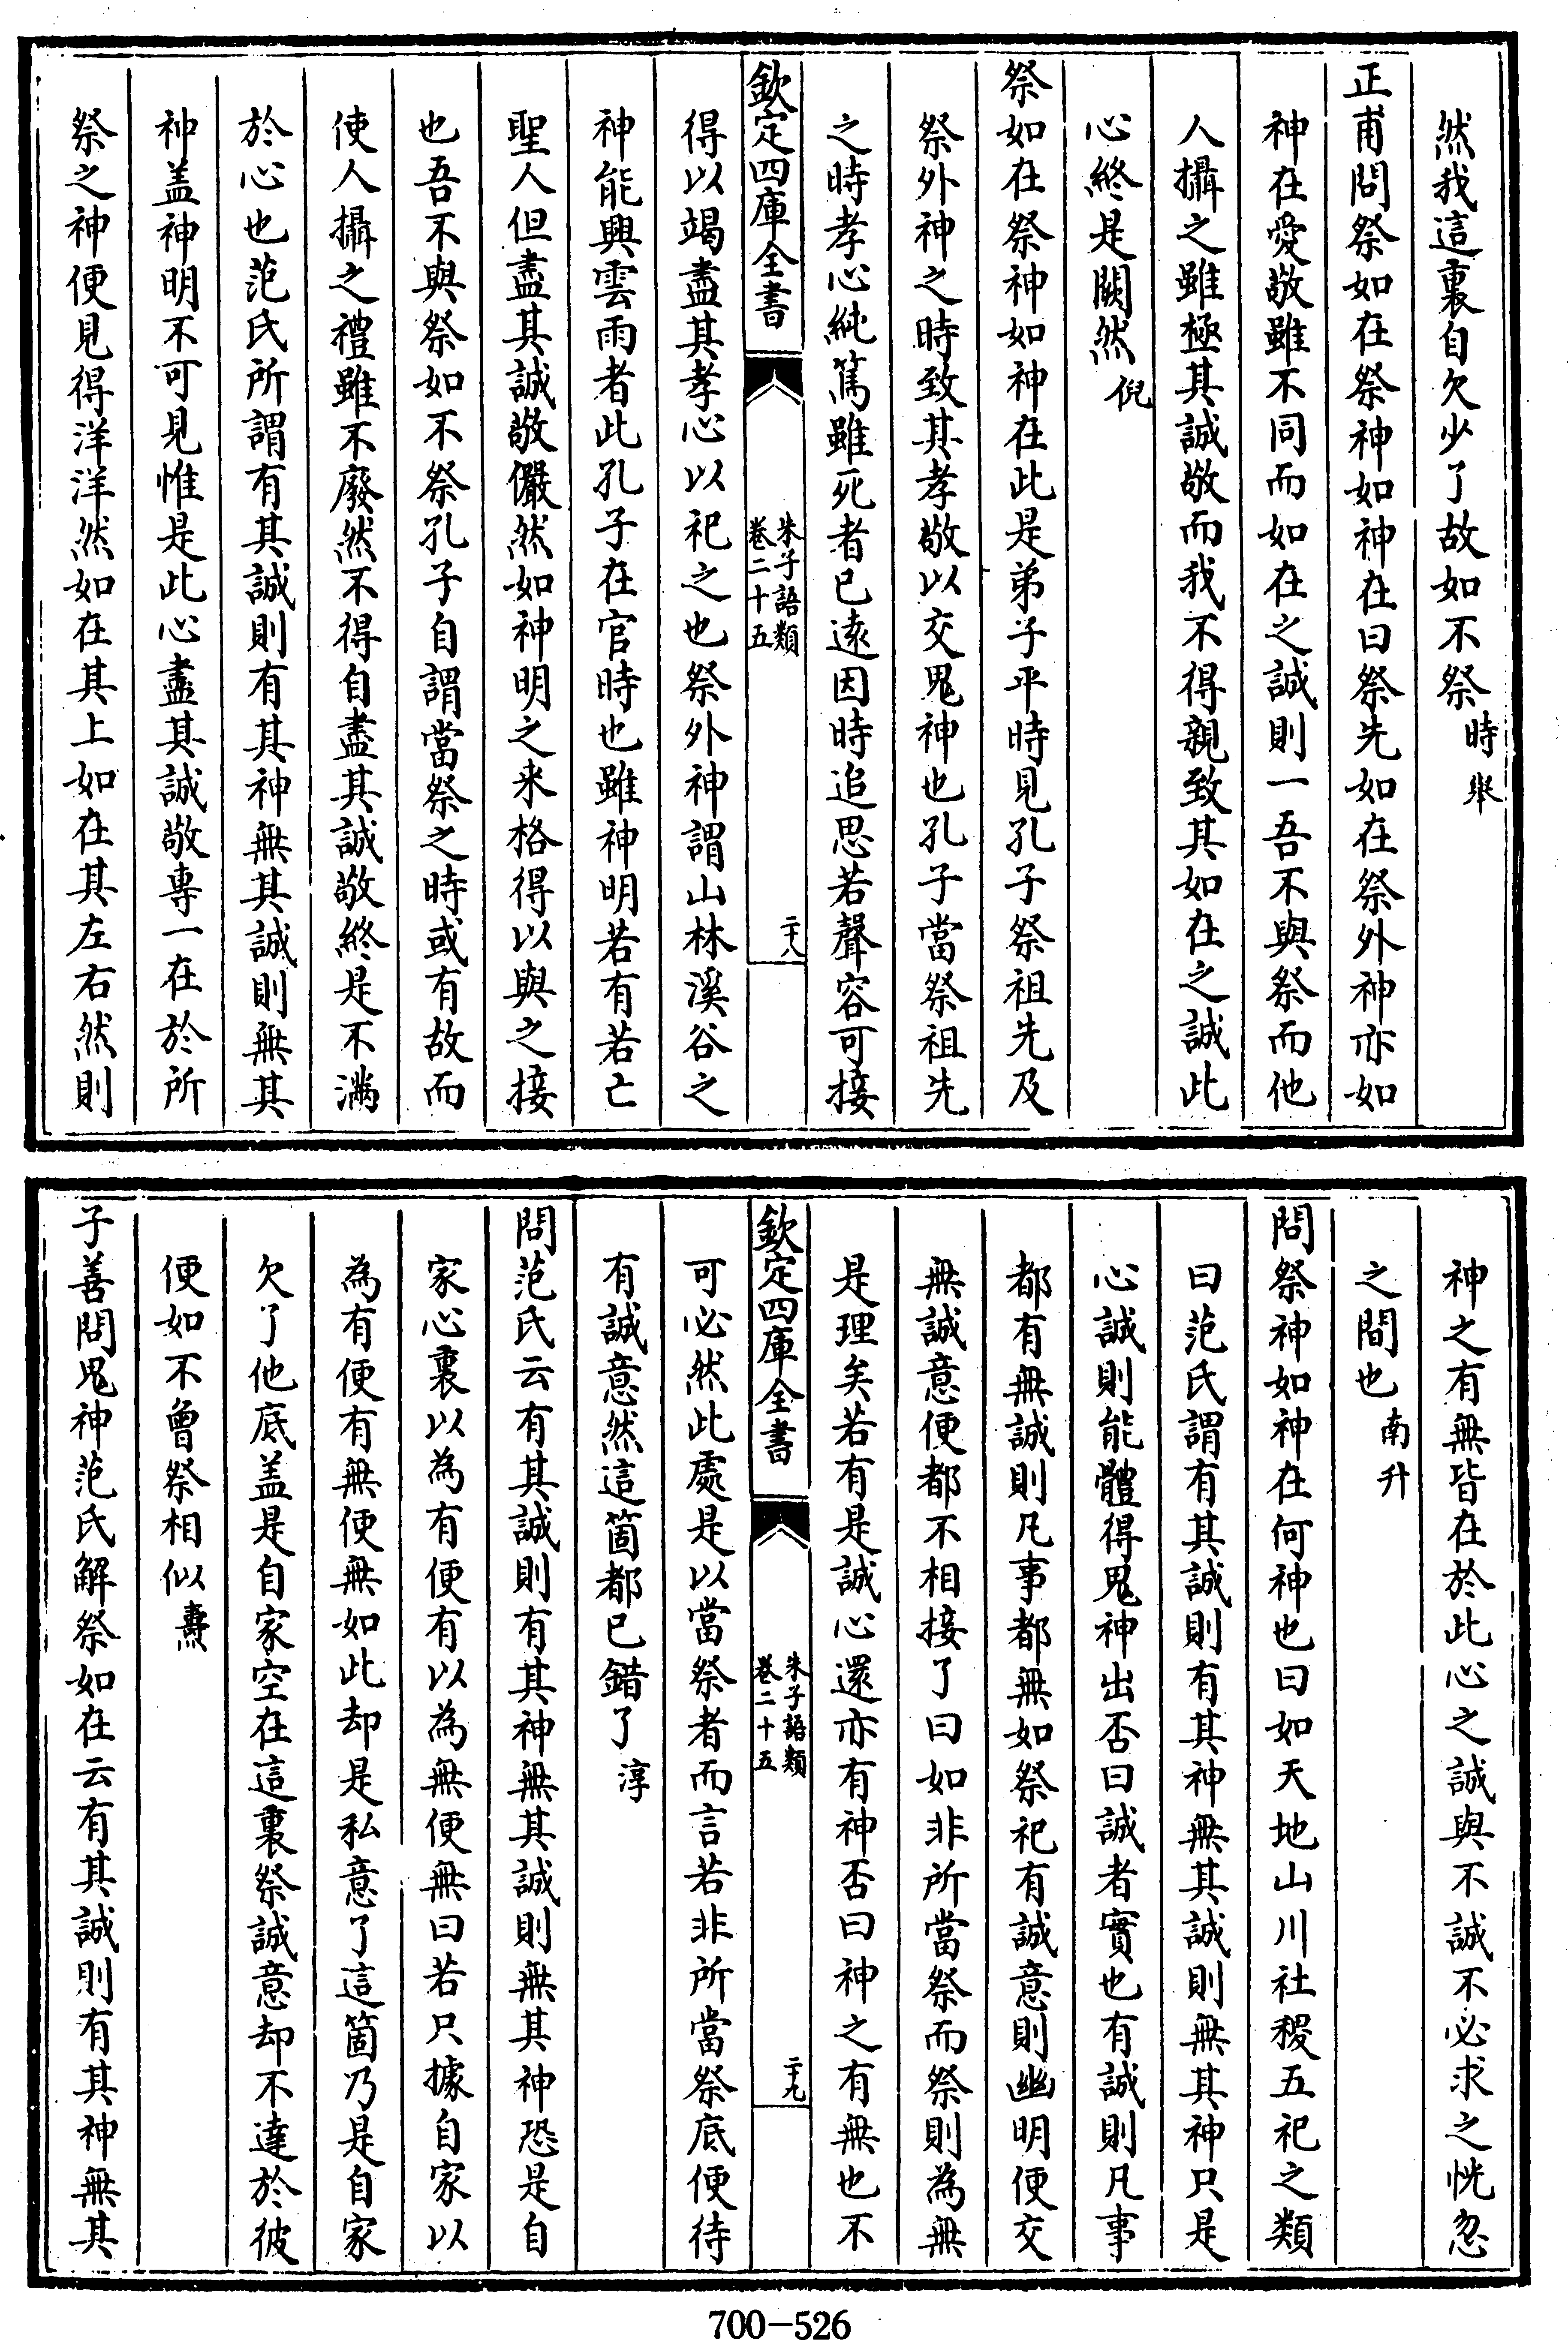 然我這裏自欠少了故如不祭時舉
正甫問祭如在祭神如神在曰祭先如在祭外神亦如
神在愛敬雖不同而如在之誠則一吾不與祭而他
人攝之雖極其誠敬而我不得親致其如在之誠此
心終是闕然倪
祭如在祭神如神在此是弟子平時見孔子祭祖先及
祭外神之時致其孝敬以交鬼神也孔子當祭祖先
之時孝心純篤雖死者已逺因時追思若聲容可接
欽定四庫全書
朱子語類
卷二十五
二十八
得以竭盡其孝心以祀之也祭外神謂山林溪谷之
神能興雲雨者此孔子在官時也雖神明若有若亡
聖人但盡其誠敬儼然如神明之来格得以與之接
也吾不與祭如不祭孔子自謂當祭之時或有故而
使人攝之禮雖不廢然不得自盡其誠敬終是不滿
於心也范氏所謂有其誠則有其神無其誠則無其
神盖神明不可見惟是此心盡其誠敬專一在於所
祭之神便見得洋洋然如在其上如在其左右然則
神之有無皆在於此心之誠與不誠不必求之恍忽
之間也南升
問祭神如神在何神也曰如天地山川社稷五祀之類
曰范氏謂有其誠則有其神無其誠則無其神只是
心誠則能體得鬼神出否曰誠者實也有誠則凡事
都有無誠則凡事都無如祭祀有誠意則幽明便交
無誠意便都不相接了曰如非所當祭而祭則為無
是理矣若有是誠心還亦有神否曰神之有無也不
欽定四庫全書
朱子語類
卷二十五
二十九
可必然此處是以當祭者而言若非所當祭底便待
有誠意然這箇都已錯了淳
問范氏云有其誠則有其神無其誠則無其神恐是自
家心裏以為有便有以為無便無曰若只據自家以
為有便有無便無如此却是私意了這箇乃是自家
欠了他底盖是自家空在這裏祭誠意却不達於彼
便如不曾祭相似燾
子善問鬼神范氏解祭如在云有其誠則有其神無其
700-526